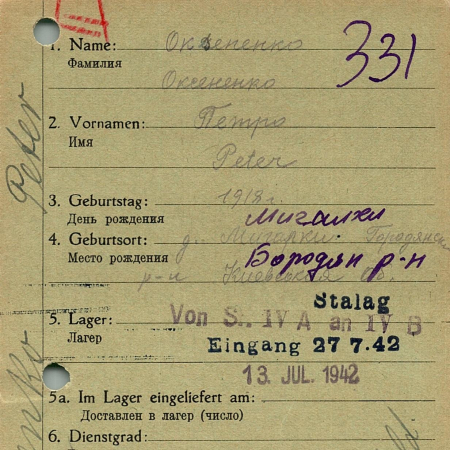 331
1. Name: Оксененко
Фамилия
Оксененко
2. Vornamen: Петро
Имя
Peter
Peter
3. Geburtstag: 1918 г.
День рождения Мигалки
4. Geburtsort: д. Мигарки Городянск
Место рождения Бородян р-н
р-н Киевской об.
Stalag
5. Lager: Von St. IV A an IV B
Лагер Eingang 27 7.42
13. JUL. 1942
5a. Im Lager eingeliefert am:
Доставлен в лагер (число)
6. Dienstgrad: